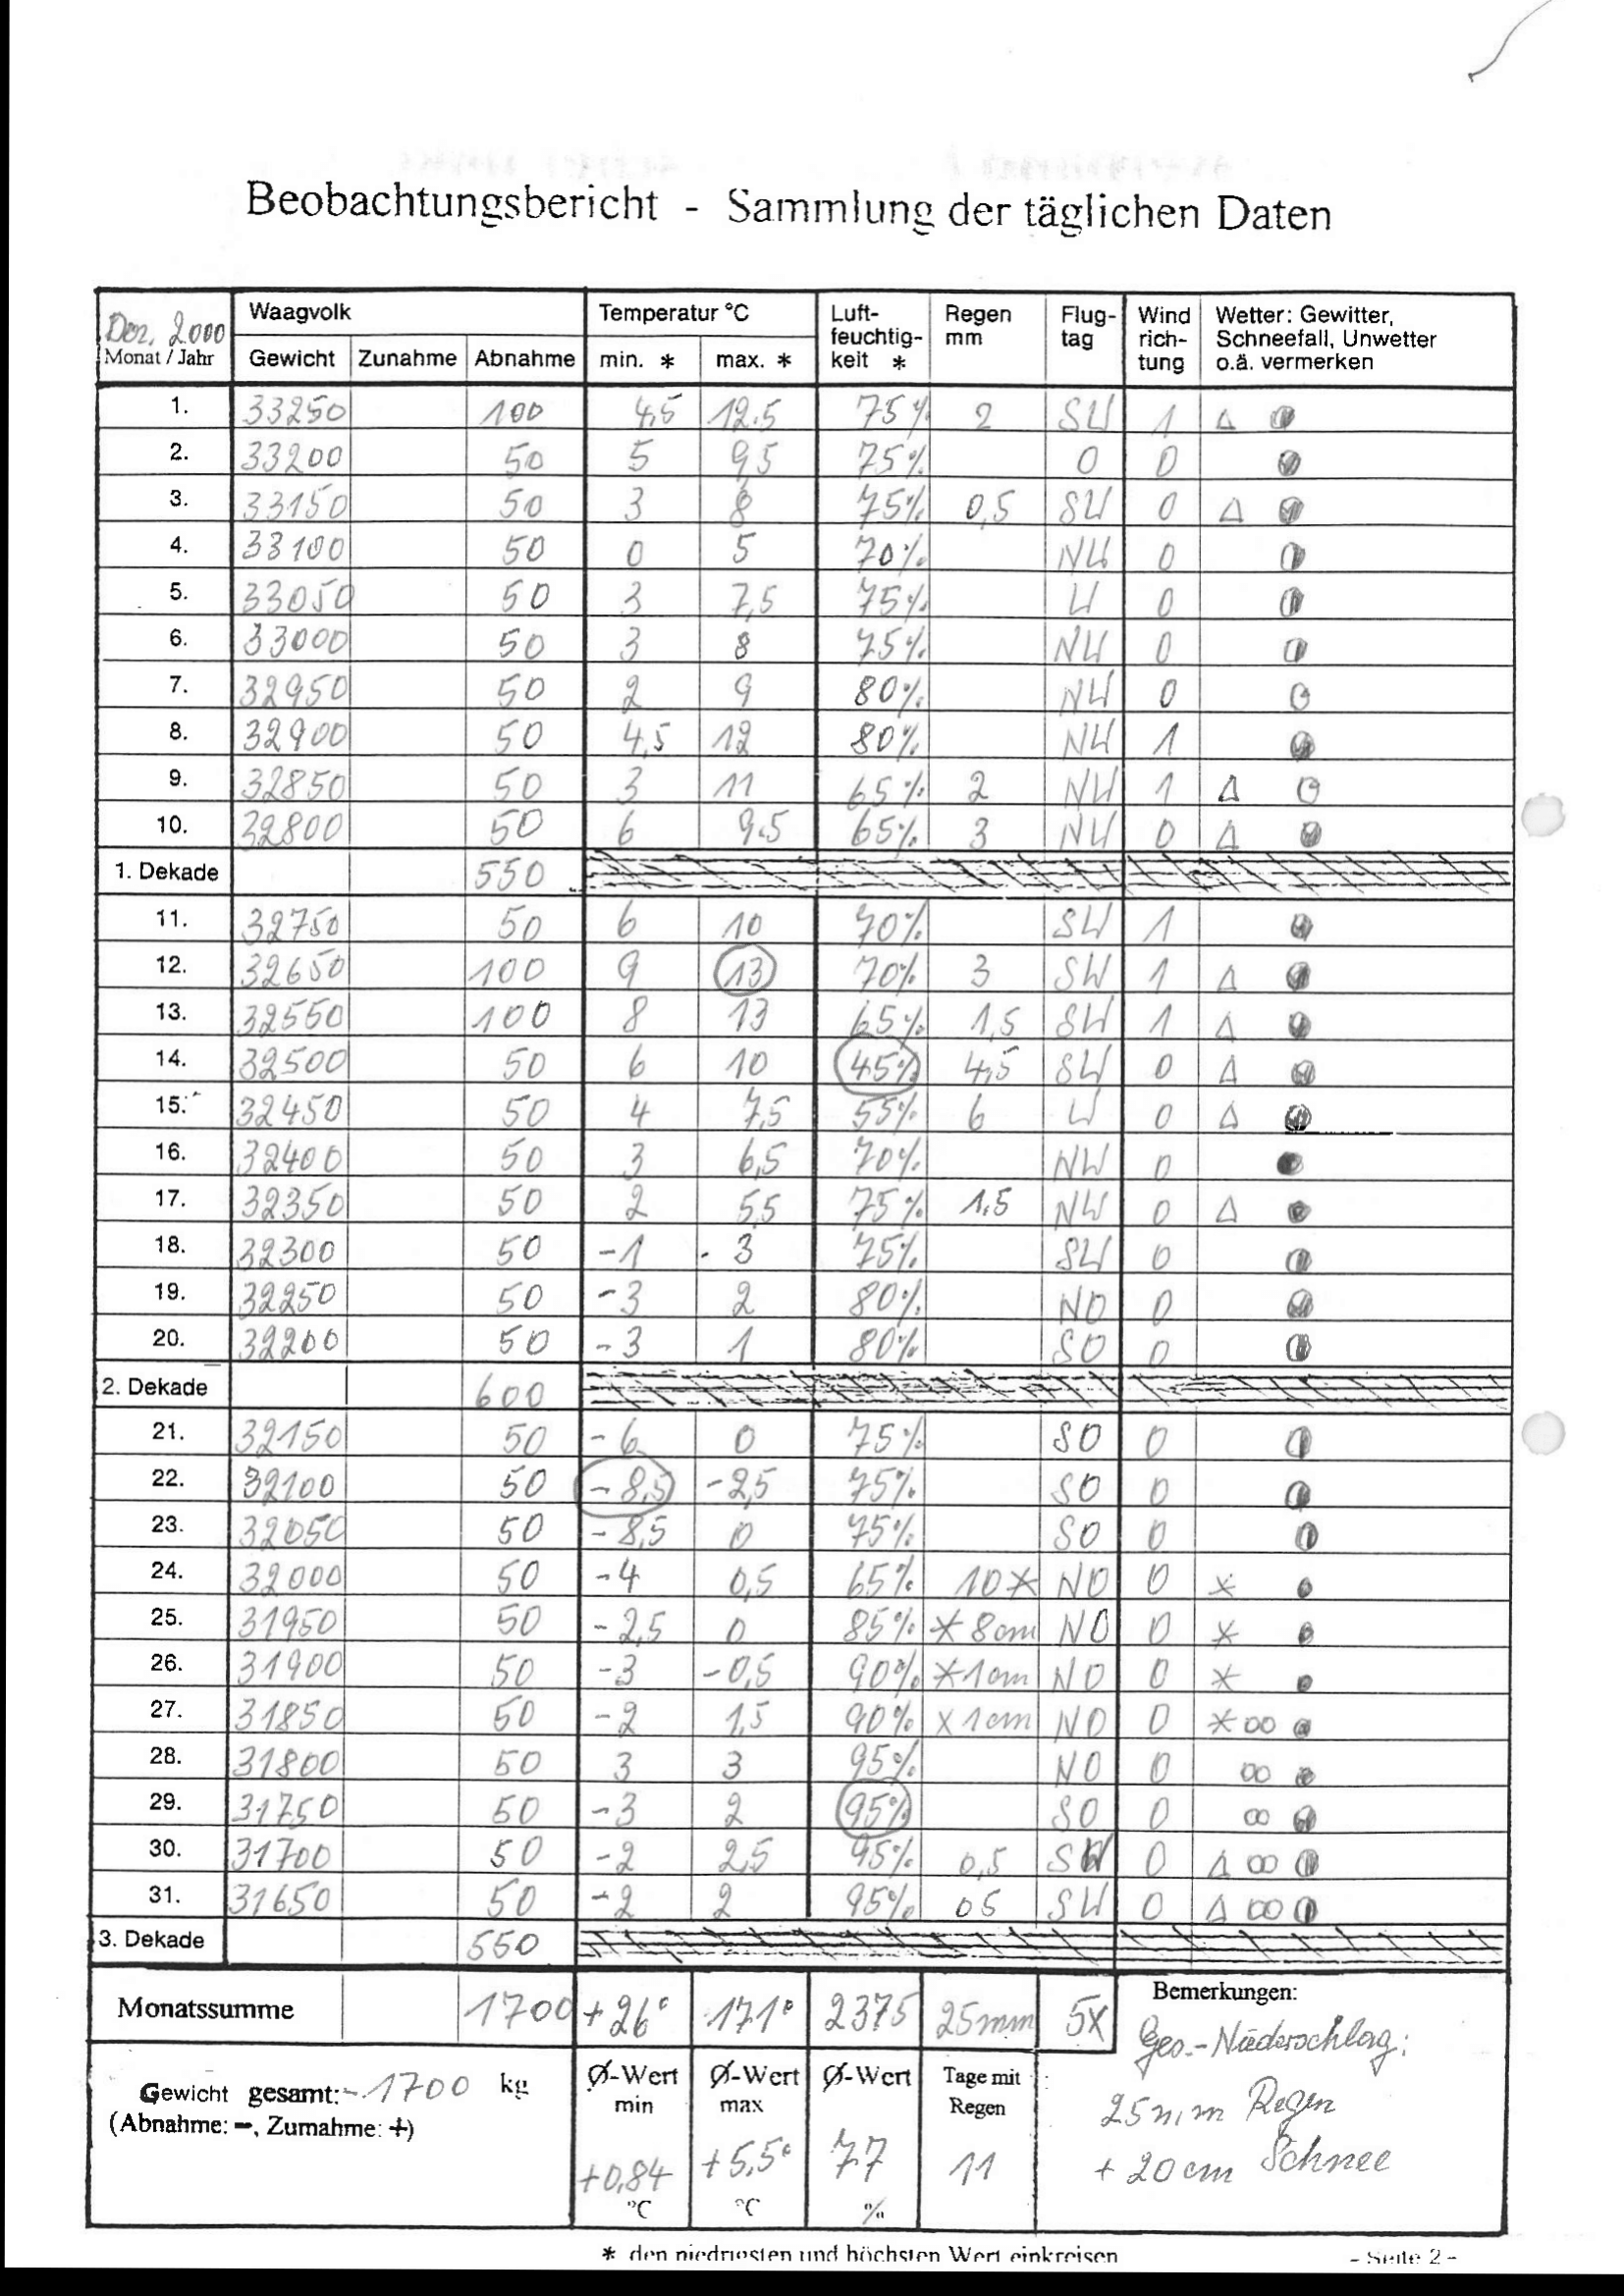 Beobachtungsbericht - Sammlung der täglichen Daten
Dez. 2000 Monat / Jahr Waagvolk Temperatur °C Luft-feuchtig-keit * Regen mm Flug-tag Wind rich-tung Wetter: Gewitter, Schneefall, Unwetter o.ä. vermerken
Gewicht Zunahme Abnahme min. * max. *
1. 33250 100 4,5 12.5 75% 2 SW 1 Δ
2. 33200 50 5 9,5 75% O 0
3. 33150 50 3 8 75% 0,5 SW 0 Δ
4. 33100 50 0 5 70% NW 0
5. 33050 50 3 7,5 75% W 0
6. 33000 50 3 8 75% NW 0
7. 32950 50 2 9 80% NW 0
8. 32900 50 4,5 12 80% NW 1
9. 32850 50 3 11 65% 2 NW 1 Δ
10. 32800 50 6 9.5 65% 3 NW 0 Δ
1. Dekade 550
11. 32750 50 6 10 70% SW 1
12. 32650 100 9 13 70% 3 SW 1 Δ
13. 32550 100 8 13 65% 1,5 SW 1 Δ
14. 32500 50 6 10 45% 4,5 SW 0 Δ
15. 32450 50 4 7,5 55% 6 W 0 Δ
16. 32400 50 3 6,5 70% NW 0
17. 32350 50 2 5,5 75% 1.5 NW 0 Δ
18. 32300 50 -1 3 75% SW 0
19. 32250 50 -3 2 80% NO 0
20. 32200 50 -3 1 80% SO 0
2. Dekade 600
21. 32150 50 -6 0 75% SO 0
22. 32100 50 -8,5 -2,5 75% SO 0
23. 32050 50 -8,5 0 75% SO 0
24. 32000 50 -4 0,5 65% 10* NO 0 *
25. 31950 50 -2,5 0 85% *8cm NO 0 *
26. 31900 50 -3 -0,5 90% *1cm NO 0 *
27. 31850 50 -2 1,5 90% x1cm NO 0 *∞
28. 31800 50 3 3 95% NO 0 ∞
29. 31750 50 -3 2 95% SO 0 ∞
30. 31700 50 -2 2,5 95% 0,5 SW 0 Δ ∞
31. 31650 50 -2 2 95% 05 SW 0 Δ ∞
3. Dekade 550
Monatssumme 1700 +26° 171° 2375 25mm 5X
Bemerkungen:
Ges.-Niederschlag:
25mm Regen
+ 20cm Schnee
Gewicht gesamt: -1700 kg
(Abnahme: -, Zumahme: +)
Ø-Wert min +0,84 °C
Ø-Wert max +5,5° °C
Ø-Wert 77 %
Tage mit Regen 11
* den niedrigsten und höchsten Wert einkreisen
- Seite 2 -